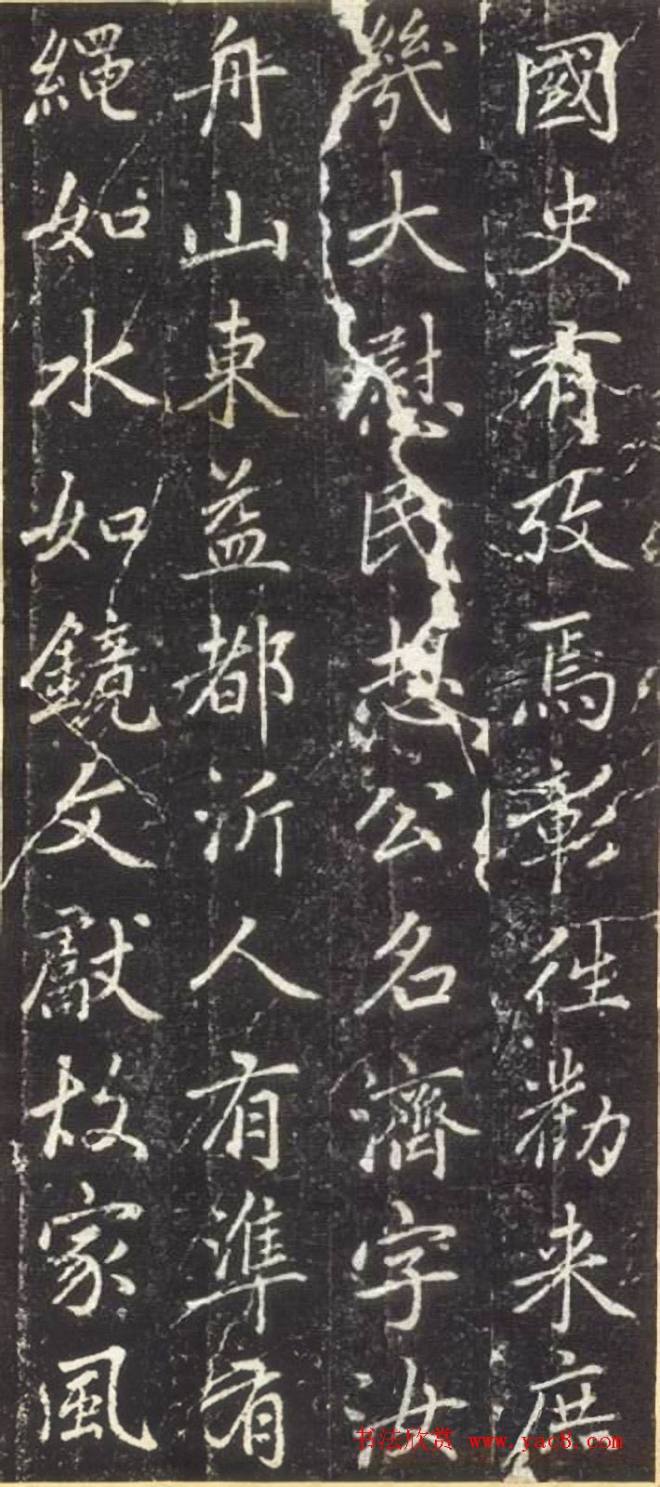 國史有攷焉彰往勸来庶
幾大慰民想公名濟字汝
舟山東益都沂人有準有
繩如水如鏡文獻故家風
书法欣赏 www.yac8.com